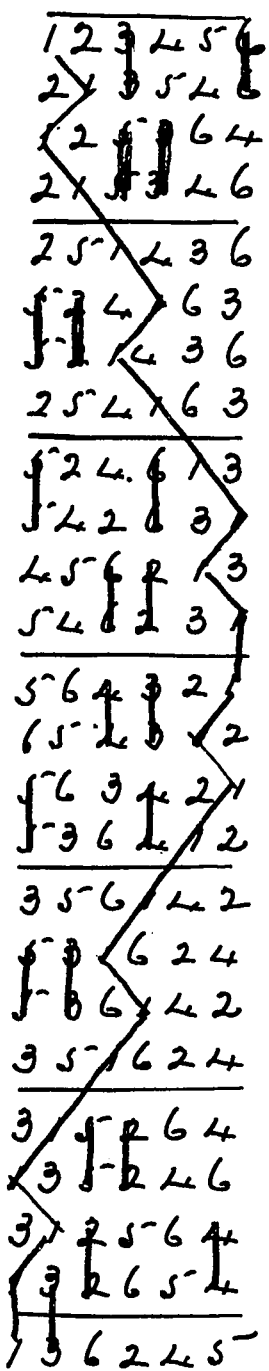 1 2 3 4 5 6
2 1 3 5 4 6
1 2 5 3 6 4
2 1 5 3 4 6
2 5 1 4 3 6
5 2 4 1 6 3
5 2 1 4 3 6
2 5 4 1 6 3
5 2 4 6 1 3
5 4 2 6 3 1
4 5 6 2 1 3
5 4 6 2 3 1
5 6 4 3 2 1
6 5 4 3 1 2
5 6 3 4 2 1
5 3 6 4 1 2
3 5 6 1 4 2
5 3 1 6 2 4
5 3 6 1 4 2
3 5 1 6 2 4
3 1 5 2 6 4
1 3 5 2 4 6
3 1 2 5 6 4
1 3 2 6 5 4
1 3 6 2 4 5